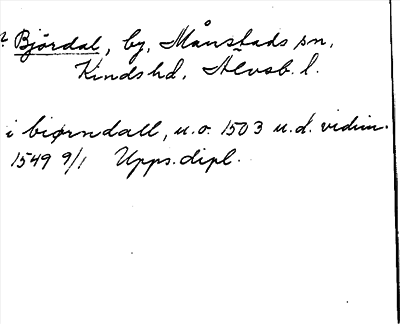 ? Björdal, by, Månstads sn,
Kinds hd, Älvsb. l.
i biørndall, u.o. 1503 u.d. vidim.
1549 9/1 Upps. dipl.